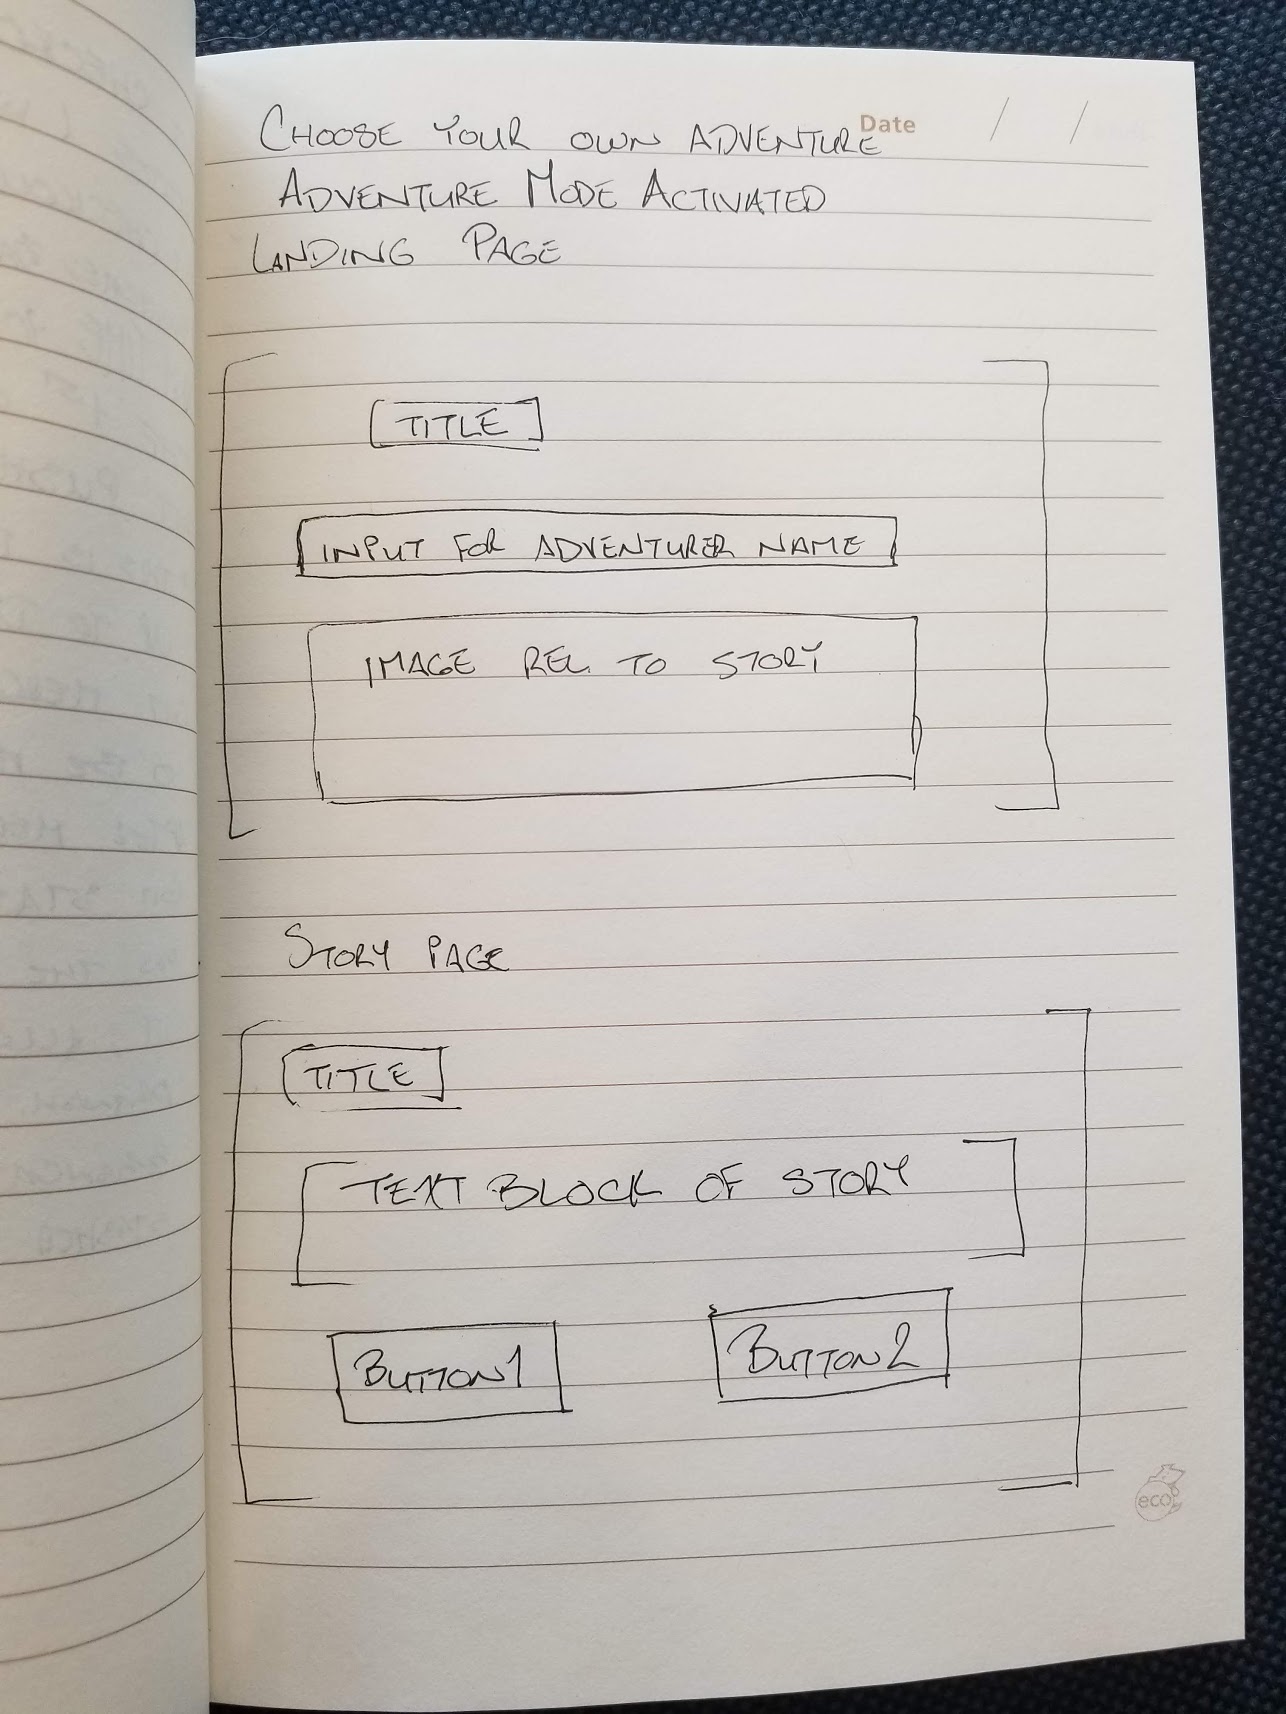 Date / /
CHOOSE YOUR OWN ADVENTURE
ADVENTURE MODE ACTIVATED
LANDING PAGE
TITLE
INPUT FOR ADVENTURER NAME
IMAGE REL. TO STORY
STORY PAGE
TITLE
TEXT BLOCK OF STORY
BUTTON 1
BUTTON 2
eco